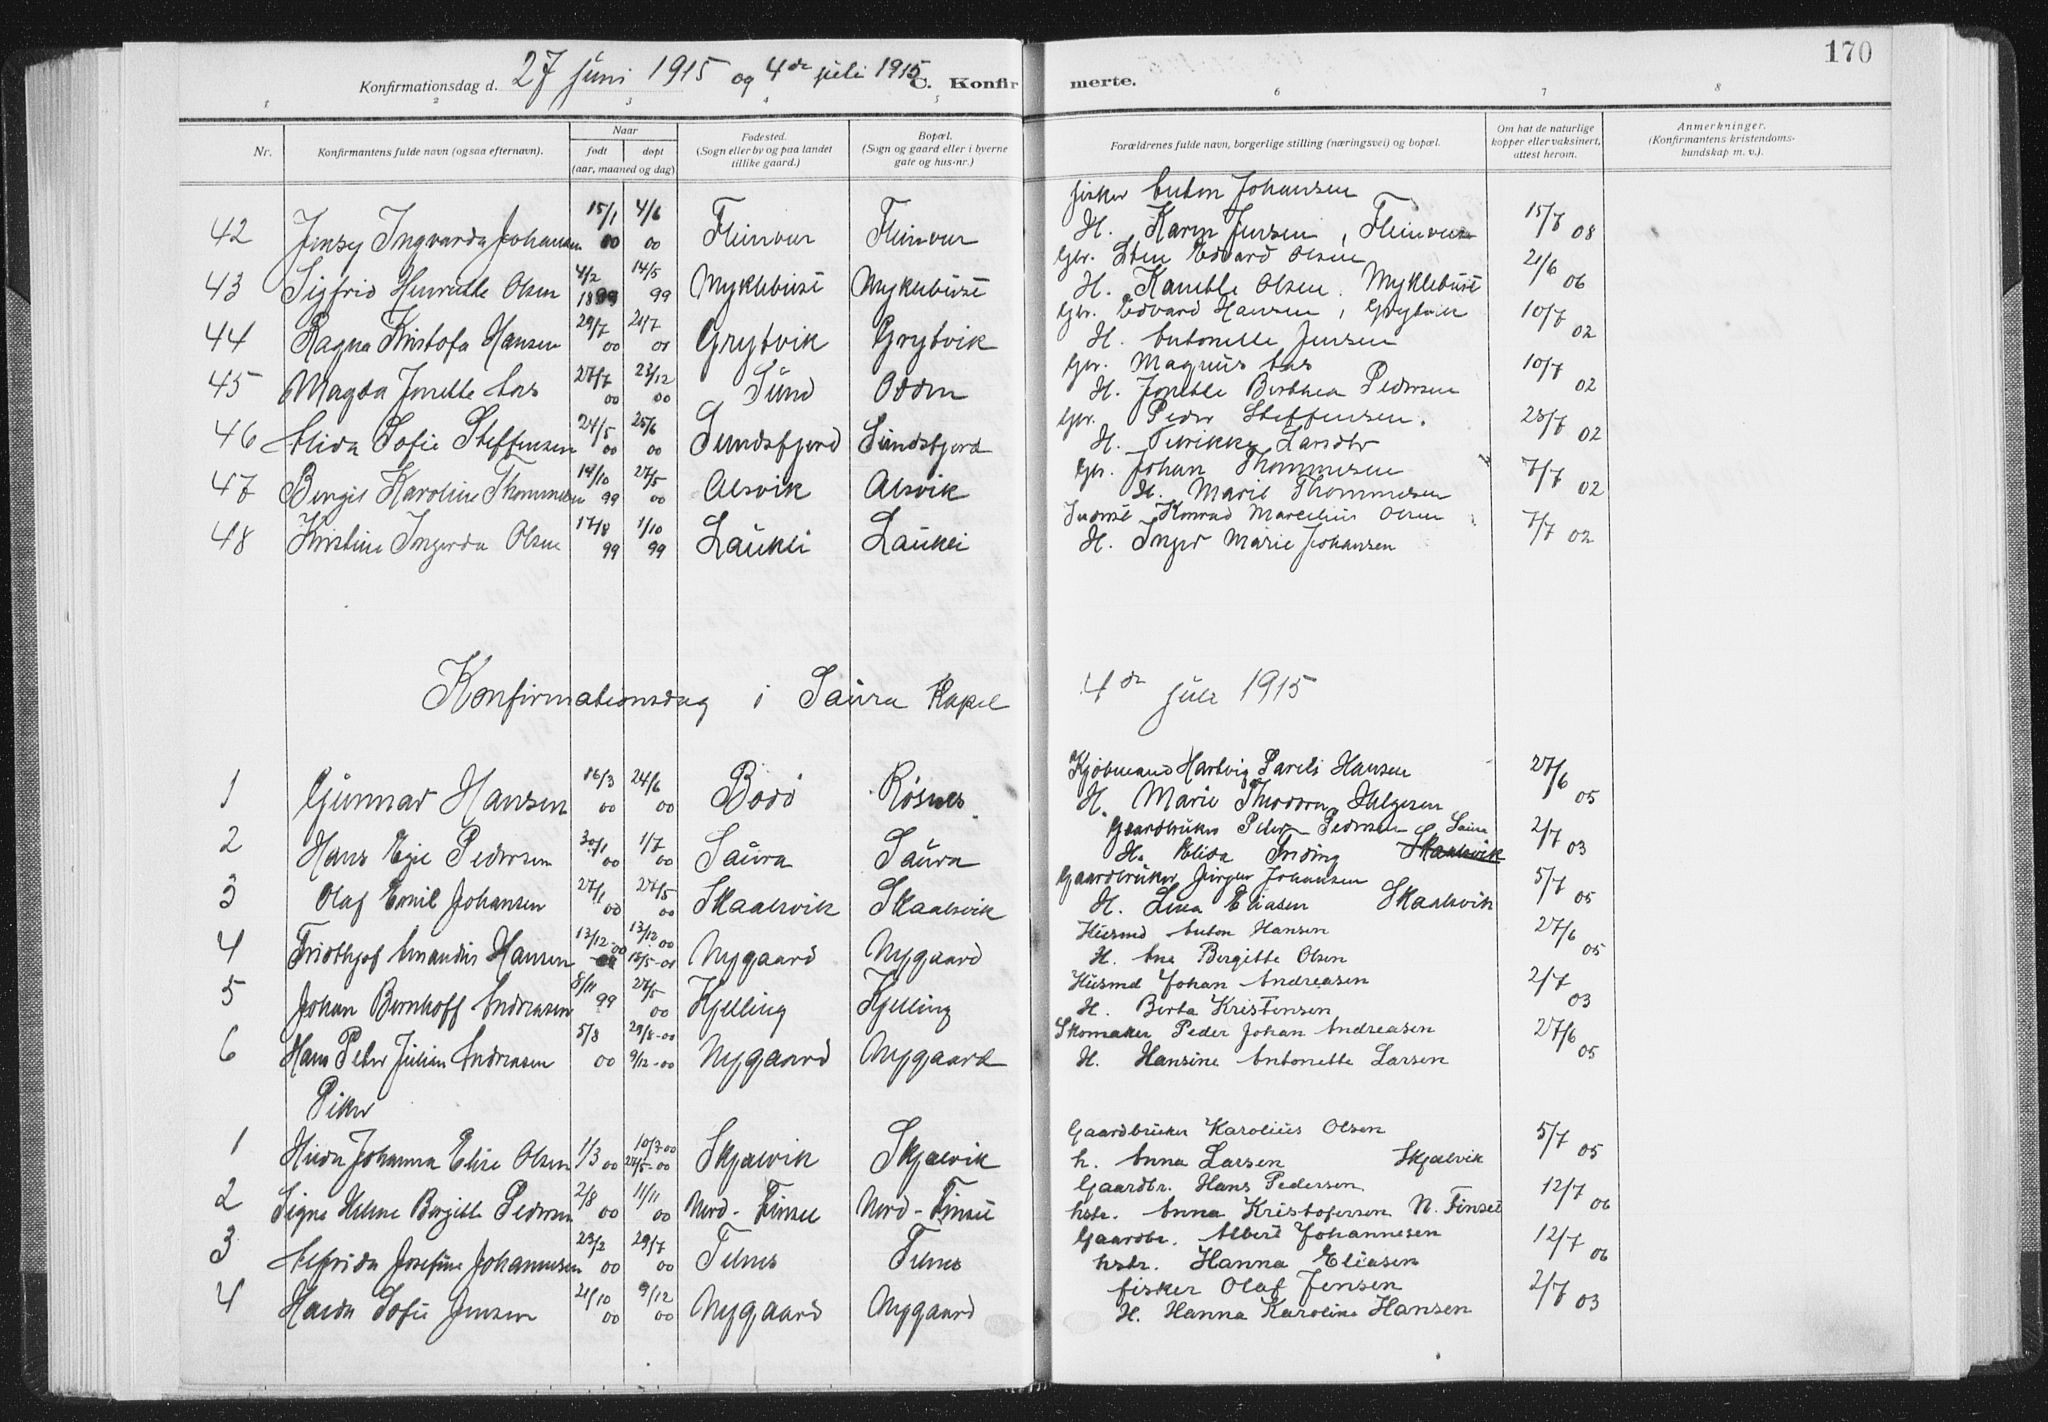 170
Konfirmationsdag d. 27 juni 1915 og 4de juli 1915 C. Konfirmerte.
1 2 3 4 5 6 7 8
Nr. Konfirmantens fulde navn (ogsaa efternavn). Naar født døpt (aar, maaned og dag) Fødested. (Sogn eller by og paa landet tillike gaard.) Bopæl. (Sogn og gaard eller i byerne gate og hus-nr.) Forældrenes fulde navn, borgerlige stilling (næringsvei) og bopæl. Om hat de naturlige kopper eller vaksinert, attest herom. Anmerkninger. (Konfirmantens kristendomskundskap m. v.).
fisker Anton Johansen
42 Jensy Ingvarda Johansen 15/1 00 4/6 00 Fleinvær Fleinvær H. Karen Jensen, Fleinvær 15/7 08
Gbr. Sten Edvard Olsen
43 Sigfrid Henrette Olsen 4/2 1899 14/5 99 Myklebust Myklebust H. Kamble Olsen. Myklebust 21/6 06
Gbr. Edvard Hansen, Grytvik
44 Ragna Kristofa Hansen 29/7 00 Grytvik Grytvik H. Antonelle Jensen 10/7 02
Gbr. Magnus Aas
45 Magda Jonette Aas 27/7 00 23/12 00 Sund Odden H. Jonette Berthea Pedersen 10/7 02
Gbr. Peder Steffensen.
46 Alida Sofie Steffensen 24/5 00 25/6 00 Sundsfjord Sundsfjord H. 23/7 02
Gbr. Johan Thommesen
47 Bergit Karoline Thommesen 14/10 99 27/5 00 Alsvik Alsvik H. Marie Thommesen 7/7 02
Inderst Konrad Marcelius Olsen
48 Kristine Ingerda Olsen 17/8 99 1/10 99 Laukei Laukei H. Inger Marie Johansen 7/7 02
Konfirmationsdag i Saura Kapel 4de juli 1915
Kjøbmand Hartvig Parels Hansen
1 Gunnar Hansen 16/3 00 24/6 00 Bodø Røsnes H. Marie Theodora Helgesen 27/6 05
Gaardbruker Peter Pedersen Saura
2 Hans Eje Pedersen 30/1 00 1/7 00 Saura Saura H. Elida Inding Skaalsvik 2/7 03
Gaardbruker Jørgen Johansen
3 Olaf Emil Johansen 27/1 00 27/5 00 Skaalsvik Skaalsvik H. Lina Eliasen Skaalsvik 5/7 05
Husmd Anton Hansen
4 Fridthjof Amandus Hansen 13/12-00 13/12 00 Nygaard Nygaard H. Ane Bergitte Olsen 27/6 05
Husmd Johan Andreasen
5 Johan Bernhoff Andreasen 8/11 99 27/5 00 Kjelling Kjelling H. Berta Kristensen 2/7 03
Skomaker Peder Johan Andreasen
6 Hans Peter Julian Andreasen 5/8 00 29/8-00 9/12-00 Nygaard Nygaard H. Hansine Antonette Larsen 27/6 05
Piker
Gaardbruker Karolius Olsen
1 Hilda Johanna Elise Olsen 1/3 00 10/3-00 27/5-00 Skjælvik Skjælvik h. Anna Larsen Skjælvik 5/7 05
Gaardbr. Hans Pedersen
2 Signe Helene Bergitte Pedersen 2/8 00 11/11 00 Nord-Finset Nord-Finset hstr. Anna Kristofersen N. Finset 12/7 06
Gaardbr. Albert Johannesen
3 Alfrida Josefine Johannesen 23/2 00 29/7 00 Tunes Tunes hstr. Hanna Eliasen 12/7 06
fisker Olaf Jensen
4 Harda Sofie Jensen 21/10 00 9/12 00 Nygaard Nygaard H. Hanna Karoline Hansen 2/7 03